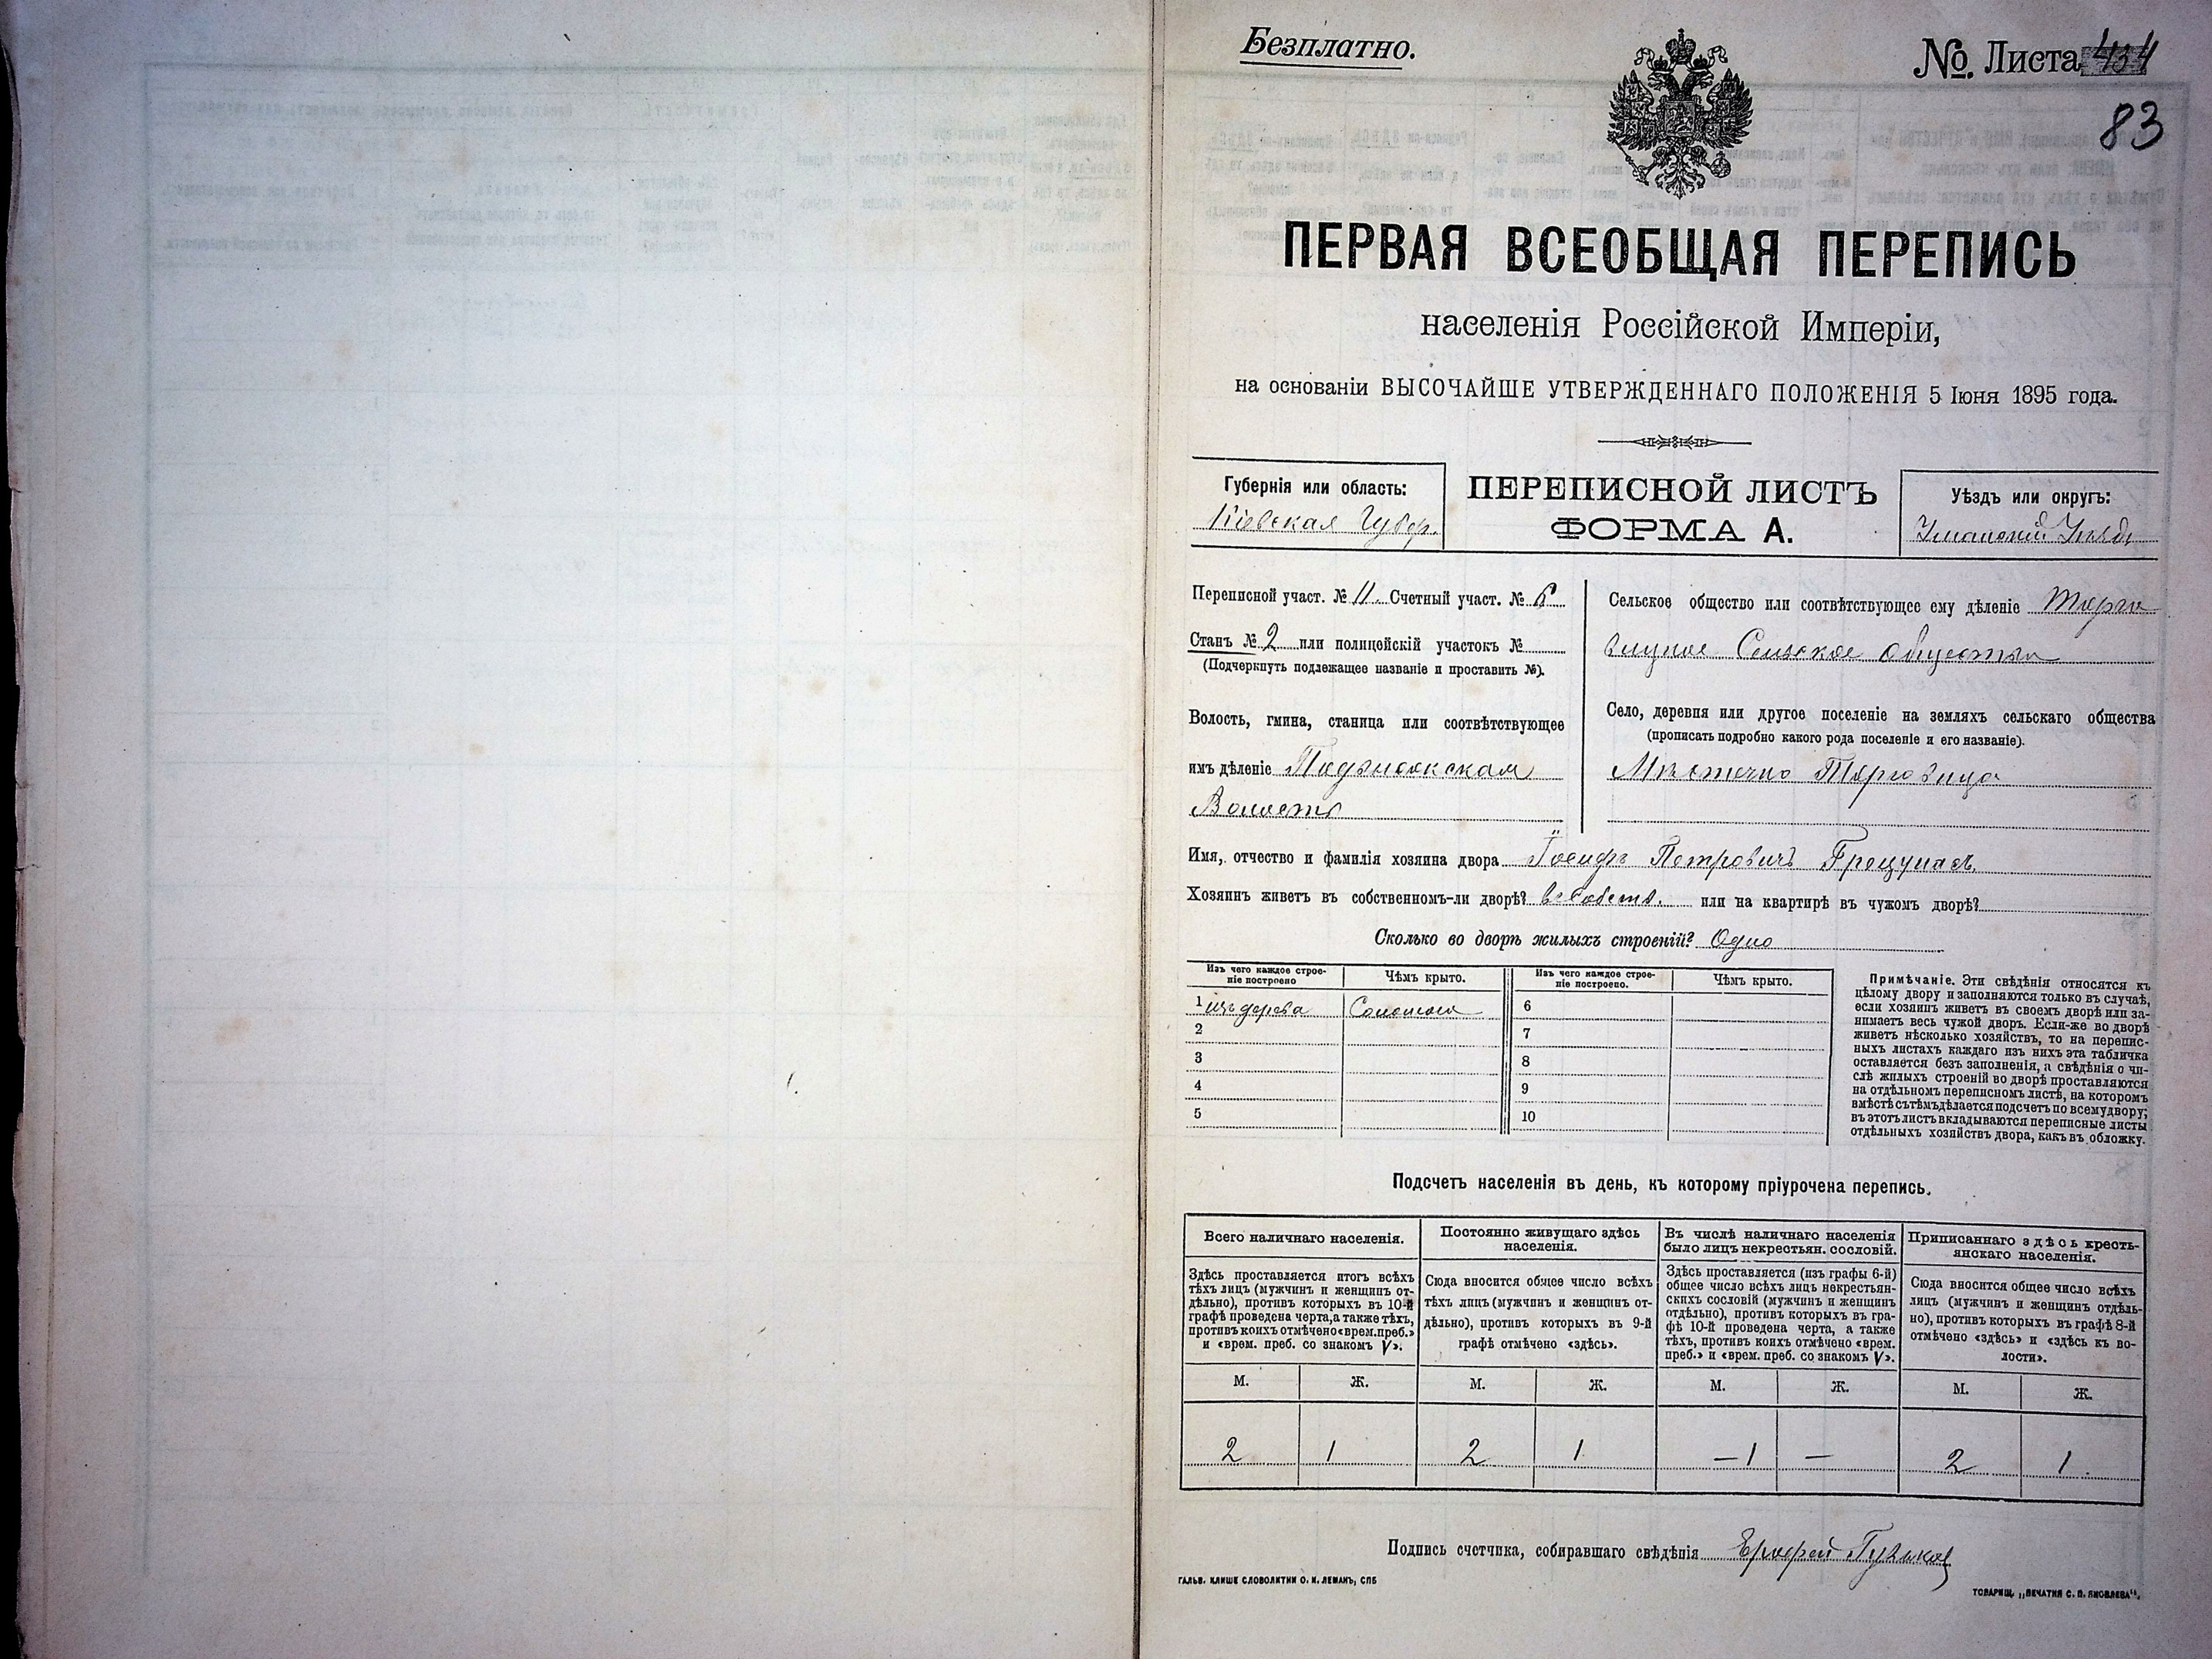 Безплатно.
№ Листа
83
ПЕРВАЯ ВСЕОБЩАЯ ПЕРЕПИСЬ
населенія Россійской Имперіи,
на основаніи ВЫСОЧАЙШЕ УТВЕРЖДЕННАГО ПОЛОЖЕНІЯ 5 Іюня 1895 года.
Губернія или область:
Кіевская Губер.
ПЕРЕПИСНОЙ ЛИСТЪ
ФОРМА А.
Уѣздъ или округъ:
Уманскій Уѣздъ
Переписной участ. № 11. Счетный участ. №
Станъ № 2 или полицейскій участокъ №
(Подчеркнуть подлежащее названіе и проставить №).
Волость, гмина, станица или соотвѣтствующее
имъ дѣленіе
Волость
Сельское общество или соотвѣтствующее ему дѣленіе Торго
вицкое Сельское общество
Село, деревня или другое поселеніе на земляхъ сельскаго общества
(прописать подробно какого рода поселеніе и его названіе).
Мѣстечко Торговица
Имя, отчество и фамилія хозяина двора Іосифъ Петровичъ
Хозяинъ живетъ въ собственномъ-ли дворѣ? въ собств. или на квартирѣ въ чужомъ дворѣ?
Сколько во дворѣ жилыхъ строеній? Одно
Изъ чего каждое строе-
ніе построено
Чѣмъ крыто.
Изъ чего каждое строе-
ніе построено.
Чѣмъ крыто.
1 изъ дерева Соломой 6
2 7
3 8
4 9
5 10
Примѣчаніе. Эти свѣдѣнія относятся къ
цѣлому двору и заполняются только въ случаѣ,
если хозяинъ живетъ въ своемъ дворѣ или за-
нимаетъ весь чужой дворъ. Если-же во дворѣ
живетъ нѣсколько хозяйствъ, то на перепис-
ныхъ листахъ каждаго изъ нихъ эта табличка
оставляется безъ заполненія, а свѣдѣнія о чи-
слѣ жилыхъ строеній во дворѣ проставляются
на отдѣльномъ переписномъ листѣ, на которомъ
вмѣстѣ съ тѣмъ дѣлается подсчетъ по всему двору;
въ этотъ листъ вкладываются переписные листы
отдѣльныхъ хозяйствъ двора, какъ въ обложку.
Подсчетъ населенія въ день, къ которому пріурочена перепись.
Всего наличнаго населенія.
Здѣсь проставляется итогъ всѣхъ
тѣхъ лицъ (мужчинъ и женщинъ от-
дѣльно), противъ которыхъ въ 10-й
графѣ проведена черта, а также тѣхъ,
противъ коихъ отмѣчено «врем. преб.»
и «врем. преб. со знакомъ V».
Постоянно живущаго здѣсь
населенія.
Сюда вносится общее число всѣхъ
тѣхъ лицъ (мужчинъ и женщинъ от-
дѣльно), противъ которыхъ въ 9-й
графѣ отмѣчено «здѣсь».
Въ числѣ наличнаго населенія
было лицъ некрестьян. сословій.
Здѣсь проставляется (изъ графы 6-й)
общее число всѣхъ лицъ некрестьян-
скихъ сословій (мужчинъ и женщинъ
отдѣльно), противъ которыхъ въ гра-
фѣ 10-й проведена черта, а также
тѣхъ, противъ коихъ отмѣчено «врем.
преб.» и «врем. преб. со знакомъ V».
Приписаннаго здѣсь кресть-
янскаго населенія.
Сюда вносится общее число всѣхъ
лицъ (мужчинъ и женщинъ отдѣль-
но), противъ которыхъ въ графѣ 8-й
отмѣчено «здѣсь» и «здѣсь къ во-
лости».
М. Ж. М. Ж. М. Ж. М. Ж.
2 1 2 1 — 1 — 2 1
Подпись счетчика, собиравшаго свѣдѣнія Ерофей
ГАЛЬВ. КЛИШЕ СЛОВОЛИТНИ О. И. ЛЕМАНЪ, СПБ
ТОВАРИЩ. „ПЕЧАТНЯ С. П. ЯКОВЛЕВА“.